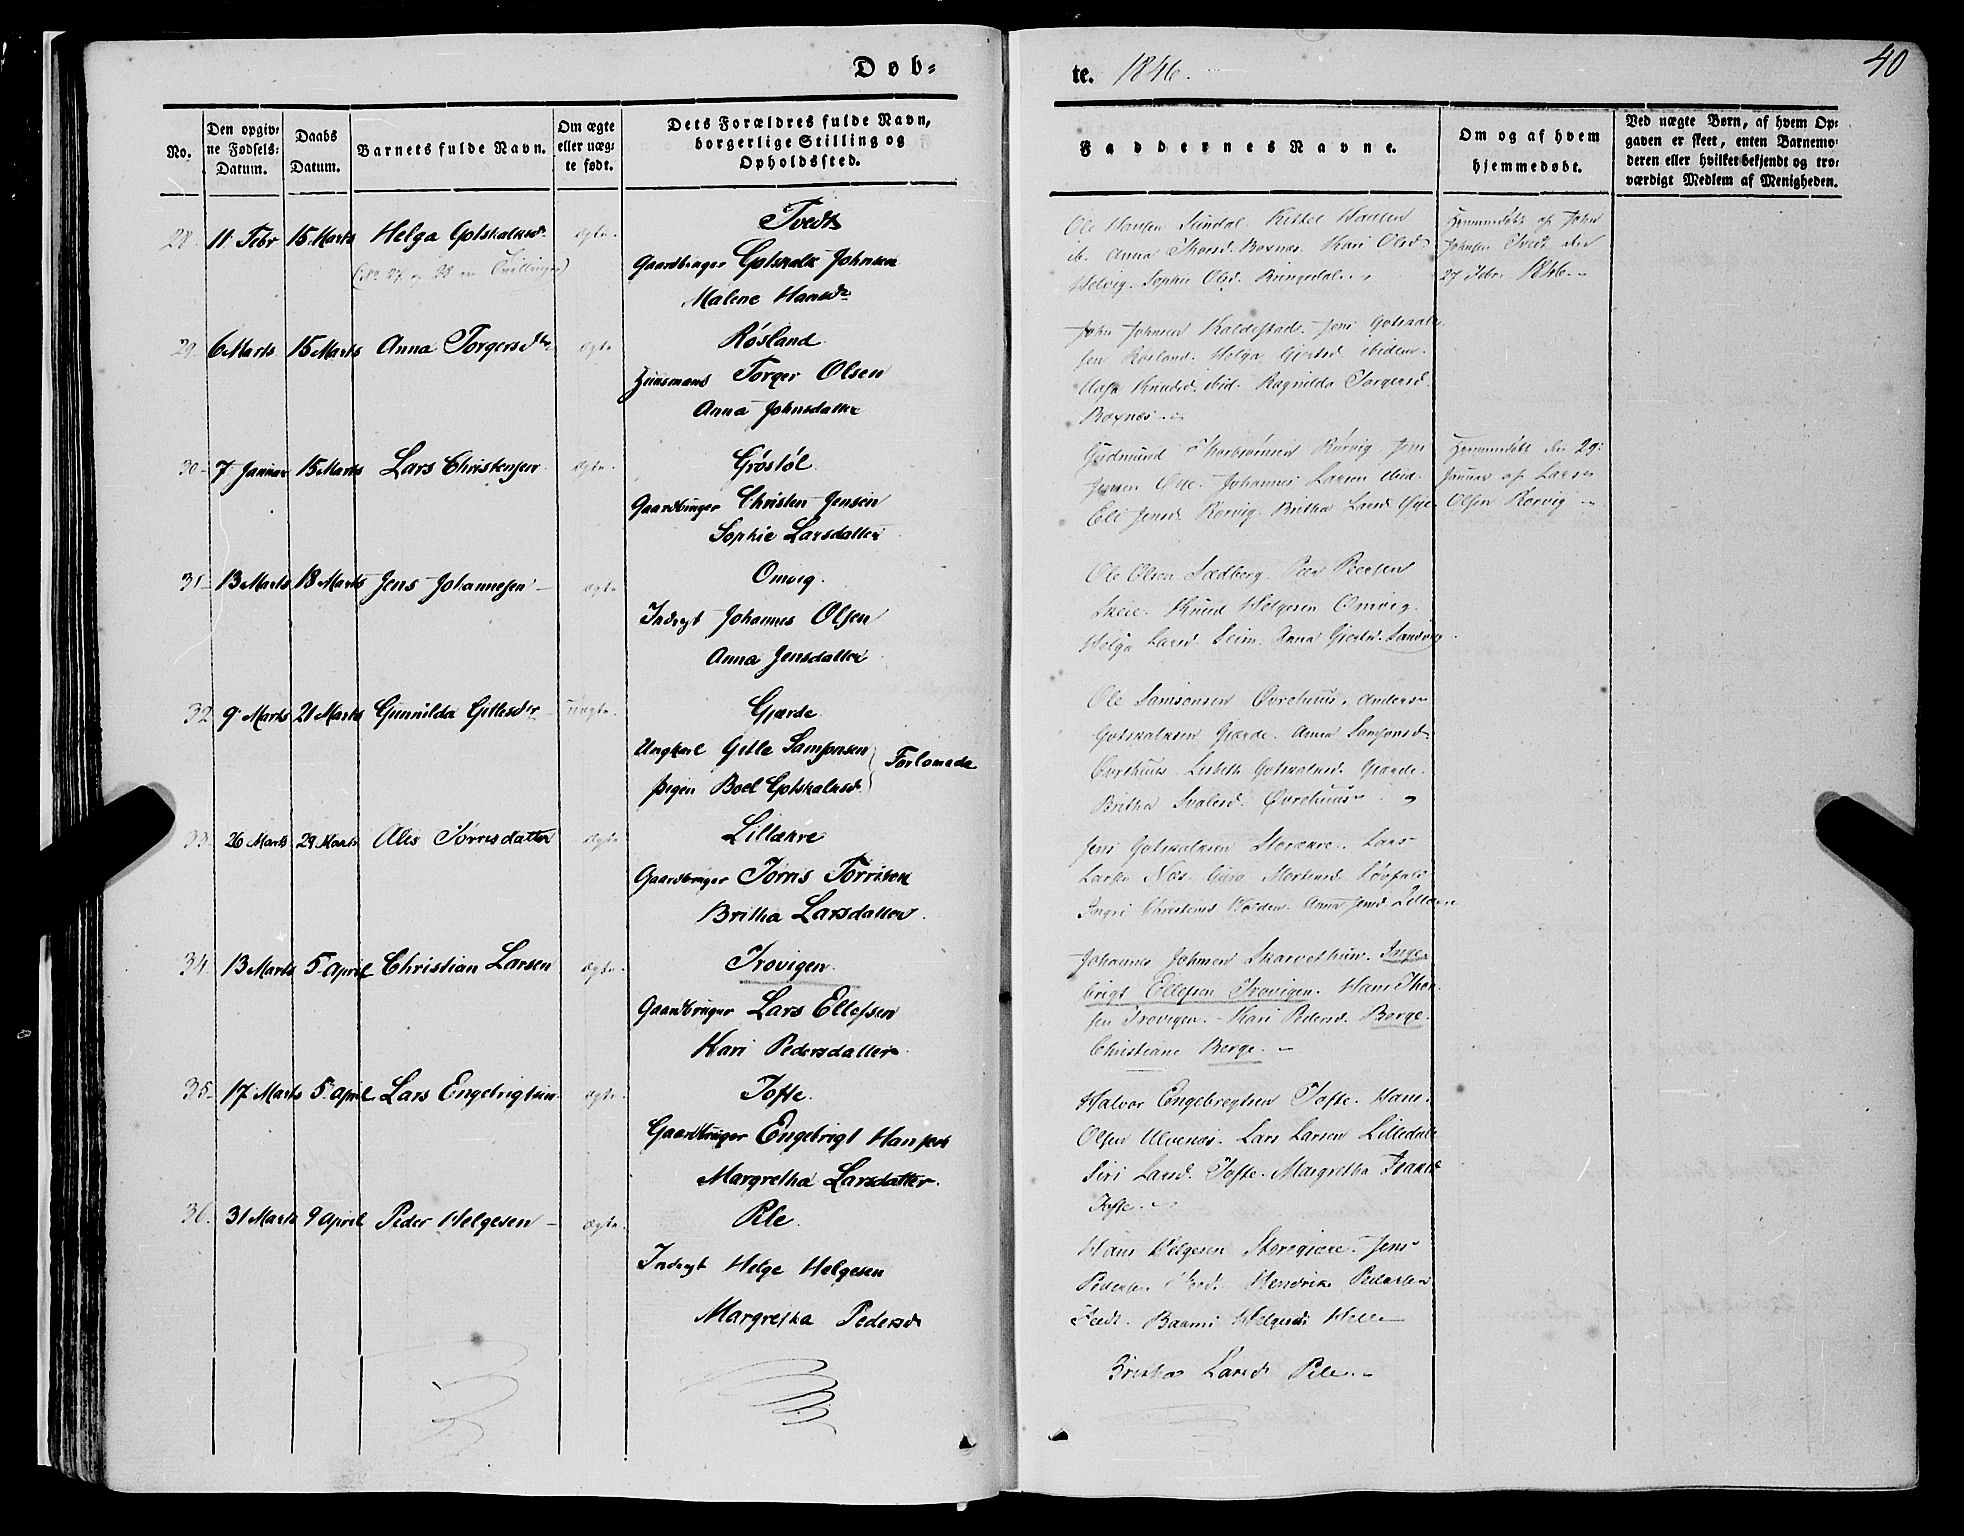 Døb-
te. 1846.
40
No.
Den opgiv-
ne Fødsels-
Datum.
Daabs
Datum.
Barnets fulde Navn.
Om ægte
eller uæg-
te født.
Dets Forældres fulde Navn,
borgerlige Stilling og
Opholdssted.
Faddernes Navne.
Om og af hvem
hjemmedøbt.
Ved uægte Børn, af hvem Op-
gaven er skeet, enten Barnemo-
deren eller hvilket bekjendt og tro-
værdigt Medlem af Menigheden.
28. 11 Febr 15 Marts Helga Gotskalksd. ægte.
(No 27 og 28 ere Tvillinger)
Tvedt
Gaardbruger Gotskalk Johnsen
Malene Hansdr
Ole Hansen Sundal. Kittel Hansen
ib. Anna Thorsd. Boxnes. Kari Olsd.
Helvig. Sophie Olsd.
Hjemmedøbt af John
Johnsen Tvedt den
27 Febr 1846.
29. 6 Marts 15 Marts Anna Torgersdtr ægte
Røsland.
Huusmand Torger Olsen
Anna Johnsdatter
John Johnsen Kaldestad. Jens Gotskalk-
sen Røsland. Helga Giertsd. ibidem.
Aasa Knudsd. ibid. Ragnilda Torgersd.
Boxnes
30. 7 Januar 15 Marts Lars Christensen ægte.
Grøstøl.
Gaardbruger Christen Jensen
Sophie Larsdatter
Gudmund Thorbjørnsen Rørvig. Jens
Jensen Øye. Johannes Larsen ibid.
Eli Jensd. Rørvig. Britha Larsd. Øye.
Hjemmedøbt den 29.
Januar af Lars
Olsen Rørvig
31. 13 Marts 18 Marts Jens Johannesen ægte
Omvig.
Inderst Johannes Olsen
Anna Jensdatter
Ole Olsen Sædberg. Peer Peersen
Skeie. Knud Helgesen Omvig.
Helga Larsd. Seim. Anna Giertsd. Sandvig.
32. 9 Marts 21 Marts Gunnilda Gitlesdtr uægte.
Gjærde.
Ungkarl Gitle Samsonsen
Pigen Boel Gotskalksd. } Forlovede
Ole Samsonsen Øvrehuus, Anders
Gotskalksen Gjærde. Anna Samsonsd.
Øvrehuus. Lisbeth Gotskalksd. Gjærde.
Britha Ivalesd. Øvrehuus.
33. 26 Marts 29 Marts Ales Tørrisdatter ægte
Lilleækre
Gaardbruger Tørris Tørrisen
Britha Larsdatter.
Jens Gotskalksen Storækre. Lars
Larsen Næs. Guro Mortensd. Løvfald
Ingri Christensd.
34. 13 Marts 5 April Christian Larsen ægte.
Trovigen.
Gaardbruger Lars Ellefsen
Kari Pedersdatter.
Johannes Johnsen Skarvethun. Inge-
brigt Ellefsen Trovigen. Hans Thor-
sen Trovigen. Kari Pedersd. Berge.
Christiane Berge.
35. 17 Marts 5 April Lars Engebrigtsen ægte.
Tofte.
Gaardbruger Engebrigt Hansen
Margretha Larsdatter.
Halvor Engebregtsen Tofte. Hans
Olsen Ulvenæs. Lars Larsen Lilledale
Siri Larsd. Tofte. Margretha
Tofte.
36. 31 Marts 9 April Peder Helgesen ægte.
Pile.
Inderst Helge Helgesen
Margretha Pedersd.
Hans Helgesen Storegiere. Jens
Pedersen Hendrik Pedersen
Helgesd. Helle
Britha Larsd. Pile.